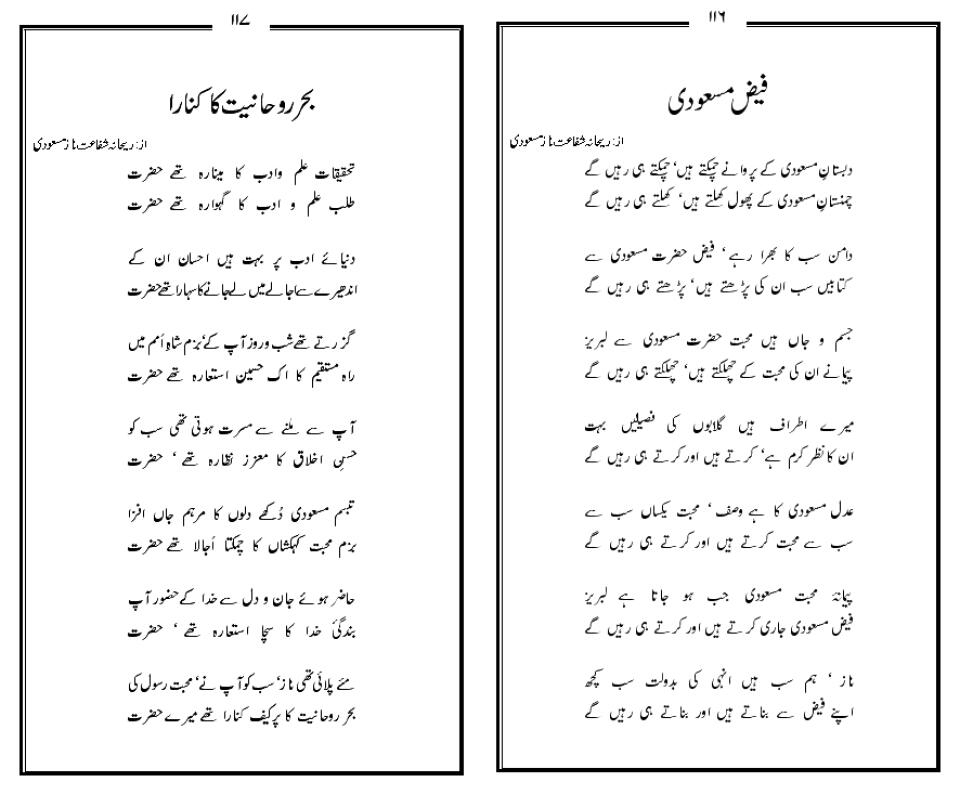 ۱۱۶
فیض مسعودی
از: ریحانہ شفاعت ناز مسعودی
دبستانِ مسعودی کے پروانے چمکتے ہیں‘ چمکتے ہی رہیں گے
چمنستانِ مسعودی کے پھول کھلتے ہیں‘ کھلتے ہی رہیں گے
دامن سب کا بھرا رہے‘ فیض حضرت مسعودی سے
کتابیں سب ان کی پڑھتے ہیں‘ پڑھتے ہی رہیں گے
جسم و جاں ہیں محبت حضرت مسعودی سے لبریز
پیمانے ان کی محبت کے چھلکتے ہیں‘ چھلکتے ہی رہیں گے
میرے اطراف ہیں گلابوں کی فصیلیں بہت
ان کا نظر کرم ہے‘ کرتے ہیں اور کرتے ہی رہیں گے
عدل مسعودی کا ہے وصف‘ محبت یکساں سب سے
سب سے محبت کرتے ہیں اور کرتے ہی رہیں گے
پیمانۂ محبت مسعودی جب ہو جاتا ہے لبریز
فیض مسعودی جاری کرتے ہیں اور کرتے ہی رہیں گے
ناز‘ ہم سب ہیں انہی کی بدولت سب کچھ
اپنے فیض سے بناتے ہیں اور بناتے ہی رہیں گے
۱۱۷
بحر روحانیت کا کنارا
از: ریحانہ شفاعت ناز مسعودی
تحقیقات علم وادب کا مینارہ تھے حضرت
طلب علم و ادب کا گہوارہ تھے حضرت
دنیائے ادب پر بہت ہیں احسان ان کے
اندھیرے سے اجالے میں لے جانے کا سہارا تھے حضرت
گزرتے تھے شب و روز آپ کے‘ بزم شاہِ اُمم میں
راہ مستقیم کا اک حسین استعارہ تھے حضرت
آپ سے ملنے سے مسرت ہوتی تھی سب کو
حسنِ اخلاق کا معزز نظارہ تھے‘ حضرت
تبسم مسعودی دُکھے دلوں کا مرہم جاں افزا
بزم محبت کہکشاں کا چمکتا اُجالا تھے حضرت
حاضر ہوئے جان و دل سے خدا کے حضور آپ
بندگیٔ خدا کا سچا استعارہ تھے‘ حضرت
مئے پلائی تھی ناز‘ سب کو آپ نے‘ محبت رسول کی
بحر روحانیت کا پرکیف کنارا تھے میرے حضرت